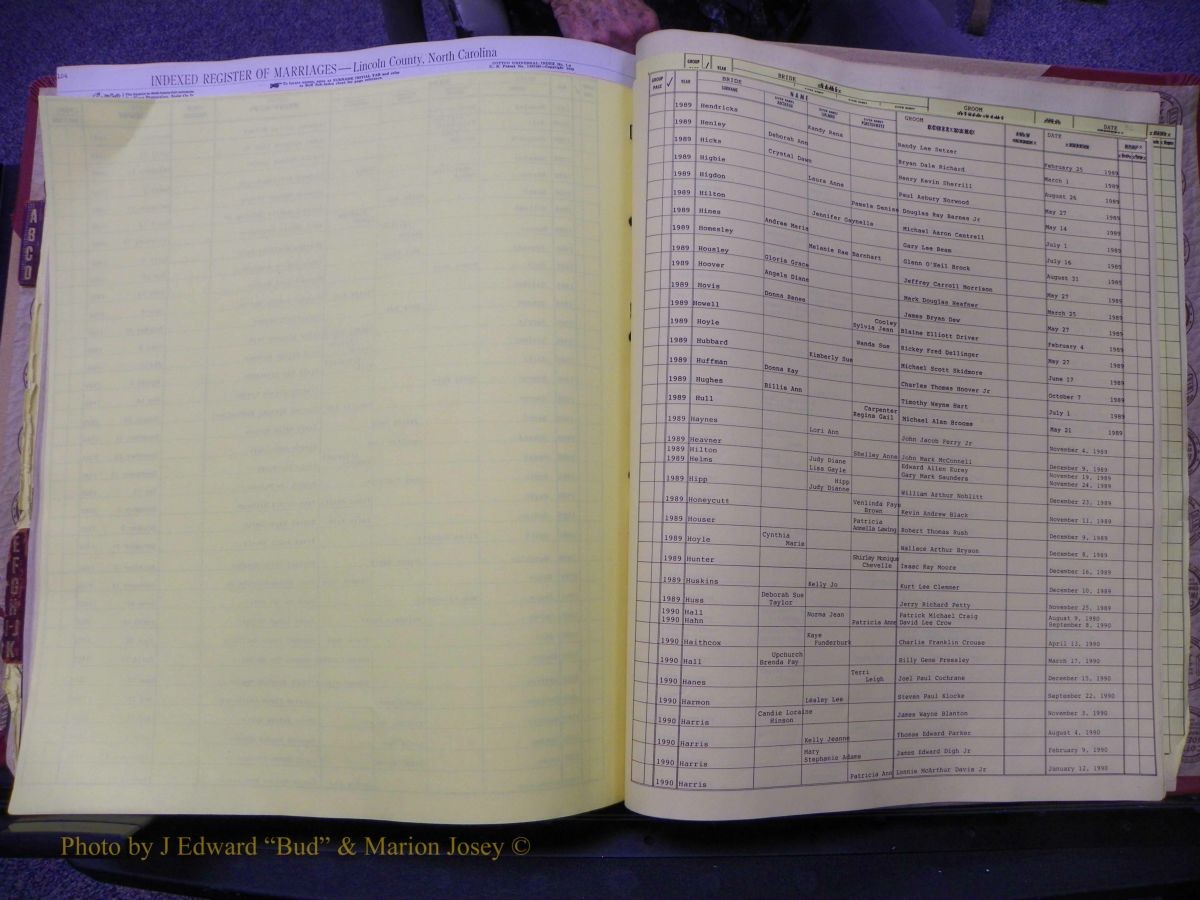 104
INDEXED REGISTER OF MARRIAGES—Lincoln County, North Carolina
GROUP YEAR BRIDE NAMES GROOM DATE
GROUP PAGE ✓ YEAR BRIDE SURNAME NAME GROOM DATE
1989 Hendricks Kandy Rena Randy Lee Setzer February 25 1989
1989 Henley Deborah Ann Bryan Dale Richard March 1 1989
1989 Hicks Crystal Dawn Henry Kevin Sherrill August 26 1989
1989 Higbie Laura Anne Paul Asbury Norwood May 27 1989
1989 Higdon Pamela Denise Douglas Ray Barnes Jr May 14 1989
1989 Hilton Jennifer Gaynelle Michael Aaron Cantrell July 1 1989
1989 Hines Andrea Marie Gary Lee Beam July 16 1989
1989 Homesley Melanie Rae Barnhart Glenn O'Neil Brock August 31 1989
1989 Housley Gloria Grace Jeffrey Carroll Morrison May 27 1989
1989 Hoover Angela Diane Mark Douglas Heafner March 25 1989
1989 Hovis Donna Renee James Bryan Dew May 27 1989
1989 Howell Cooley Sylvia Jean Blaine Elliott Driver February 4 1989
1989 Hoyle Wanda Sue Rickey Fred Dellinger May 27 1989
1989 Hubbard Kimberly Sue Michael Scott Skidmore June 17 1989
1989 Huffman Donna Kay Charles Thomas Hoover Jr October 7 1989
1989 Hughes Billie Ann Timothy Wayne Hart July 1 1989
1989 Hull Carpenter Regina Gail Michael Alan Broome May 21 1989
1989 Haynes Lori Ann John Jacob Perry Jr November 4, 1989
1989 Heavner Shelley Anne John Mark McConnell December 9, 1989
1989 Hilton Judy Diane Edward Allen Eurey November 19, 1989
1989 Helms Lisa Gayle Gary Mark Saunders November 24, 1989
1989 Hipp Hipp Judy Dianne William Arthur Noblitt December 23, 1989
1989 Honeycutt Venlinda Faye Brown Kevin Andrew Black November 11, 1989
1989 Houser Patricia Annella Lewing Robert Thomas Rush December 9, 1989
1989 Hoyle Cynthia Marie Wallace Arthur Bryson December 8, 1989
1989 Hunter Shirley Monique Chevelle Isaac Ray Moore December 16, 1989
1989 Huskins Kelly Jo Kurt Lee Clemmer December 10, 1989
1989 Huss Deborah Sue Taylor Jerry Richard Petty November 25, 1989
1990 Hall Norma Jean Patrick Michael Craig August 9, 1990
1990 Hahn Patricia Anne David Lee Crow September 8, 1990
1990 Haithcox Kaye Funderburk Charlie Franklin Crouse April 13, 1990
1990 Hall Upchurch Brenda Fay Billy Gene Pressley March 17, 1990
1990 Hanes Terri Leigh Joel Paul Cochrane December 15, 1990
1990 Harmon Lesley Lee Steven Paul Klocke September 22, 1990
1990 Harris Candie Loraine Hinson James Wayne Blanton November 3, 1990
1990 Harris Kelly Jeanne Thomas Edward Parker August 4, 1990
1990 Harris Mary Stephanie Adams James Edward Digh Jr February 9, 1990
1990 Harris Patricia Ann Lonnie McArthur Davis Jr January 12, 1990
A
B
C
D
E
F
G
H
I
K
Photo by J Edward “Bud” & Marion Josey ©